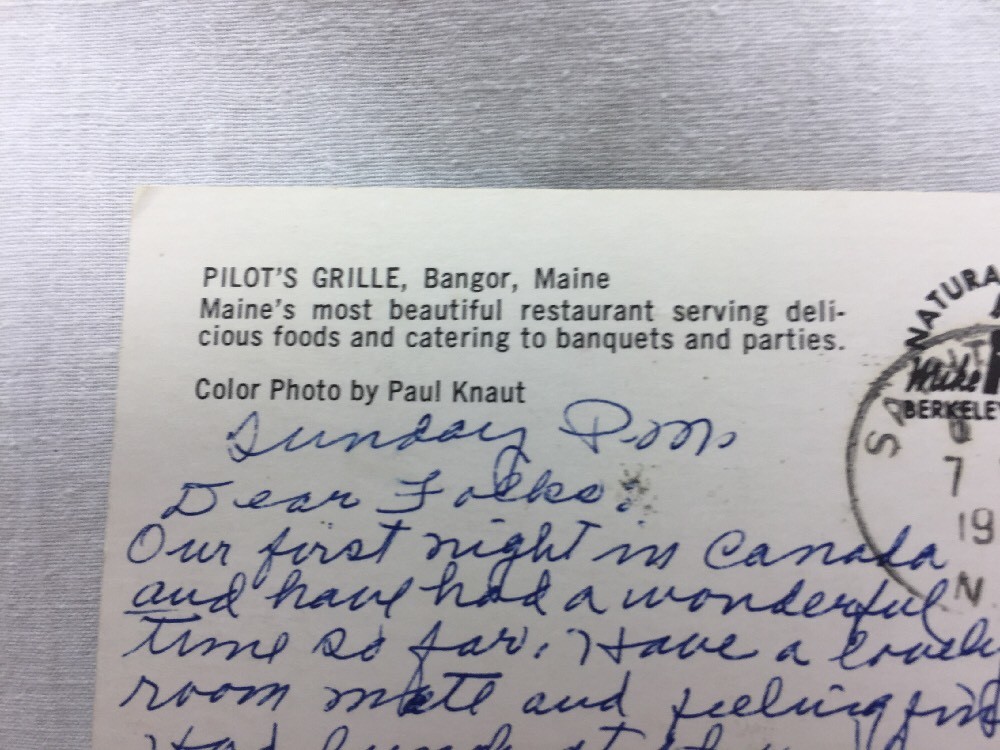 PILOT'S GRILLE, Bangor, Maine
Maine's most beautiful restaurant serving deli-
cious foods and catering to banquets and parties.
Color Photo by Paul Knaut
Sunday P.m.
Dear Folks:
Our first night in Canada
and have had a wonderful
time so far. Have a lovely
room mate and feeling
Had lunch at
NATURA
Mike
BERKELE
SA
7
19
N